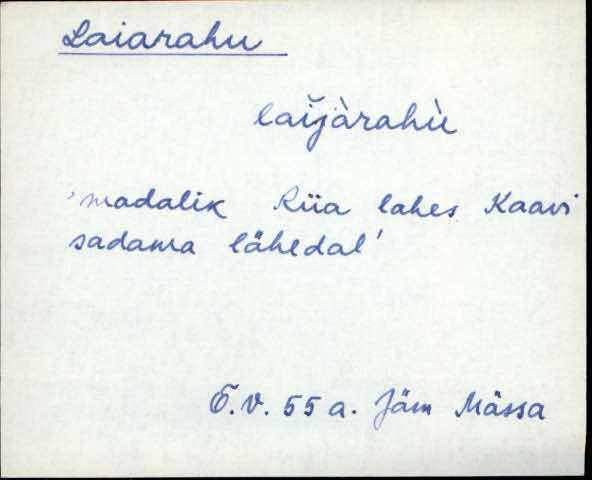 Laiarahu
laĭjàrahù
'madalik Riia lahes Kaavi
sadama lähedal'
E.V. 55 a. Jäm Mässa